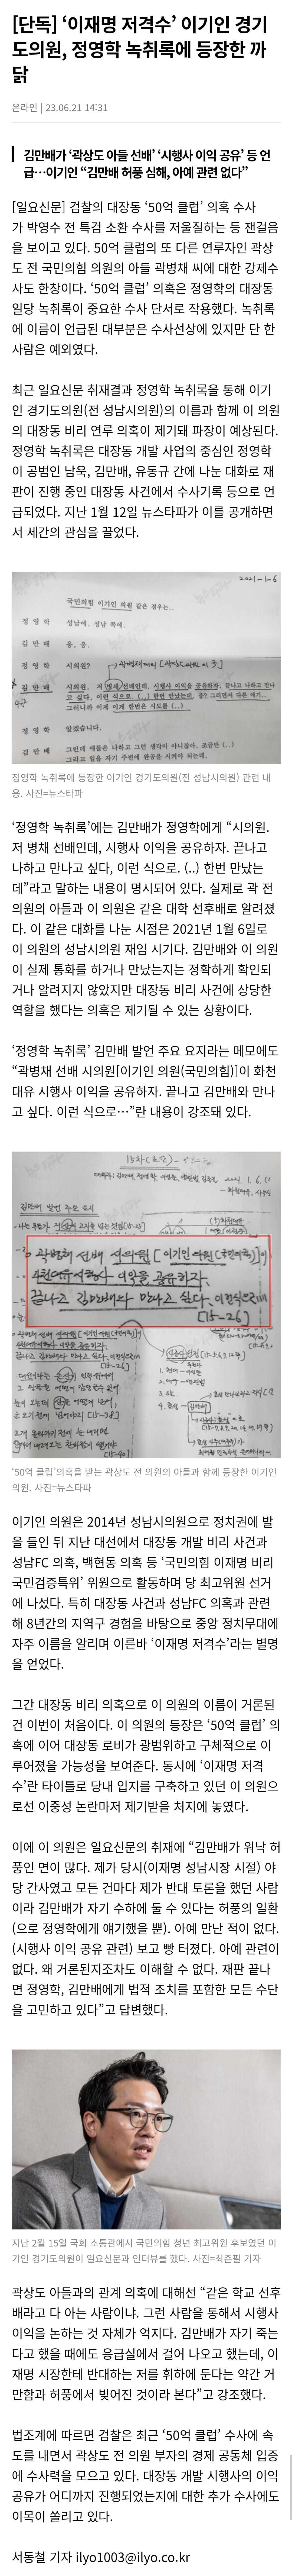 [단독] ‘이재명 저격수’ 이기인 경기
도의원, 정영학 녹취록에 등장한 까
닭
온라인 | 23.06.21 14:31
김만배가 ‘곽상도 아들 선배’ ‘시행사 이익 공유’ 등 언
급…이기인 “김만배 허풍 심해, 아예 관련 없다”
[일요신문] 검찰의 대장동 ‘50억 클럽’ 의혹 수사
가 박영수 전 특검 소환 수사를 저울질하는 등 잰걸음
을 보이고 있다. 50억 클럽의 또 다른 연루자인 곽상
도 전 국민의힘 의원의 아들 곽병채 씨에 대한 강제수
사도 한창이다. ‘50억 클럽’ 의혹은 정영학의 대장동
일당 녹취록이 중요한 수사 단서로 작용했다. 녹취록
에 이름이 언급된 대부분은 수사선상에 있지만 단 한
사람은 예외였다.
최근 일요신문 취재결과 정영학 녹취록을 통해 이기
인 경기도의원(전 성남시의원)의 이름과 함께 이 의원
의 대장동 비리 연루 의혹이 제기돼 파장이 예상된다.
정영학 녹취록은 대장동 개발 사업의 중심인 정영학
이 공범인 남욱, 김만배, 유동규 간에 나눈 대화로 재
판이 진행 중인 대장동 사건에서 수사기록 등으로 언
급되었다. 지난 1월 12일 뉴스타파가 이를 공개하면
서 세간의 관심을 끌었다.
2021-1-6
국민의힘 이기인 의원 같은 경우는..
정 영 학 성남에. 성남 쪽에.
김 만 배 응, 응.
정 영 학 시의원?
김 만 배 시의원. 저 병채 선배인데, 시행사 이익을 공유하자. 끝나고 나하고 만나
고 싶다, 이런 식으로. (..) 한번 만났는데.
정 영 학 알겠습니다.
김 만 배
정영학 녹취록에 등장한 이기인 경기도의원(전 성남시의원) 관련 내
용. 사진=뉴스타파
‘정영학 녹취록’에는 김만배가 정영학에게 “시의원.
저 병채 선배인데, 시행사 이익을 공유하자. 끝나고
나하고 만나고 싶다, 이런 식으로. (..) 한번 만났는
데”라고 말하는 내용이 명시되어 있다. 실제로 곽 전
의원의 아들과 이 의원은 같은 대학 선후배로 알려졌
다. 이 같은 대화를 나눈 시점은 2021년 1월 6일로
이 의원의 성남시의원 재임 시기다. 김만배와 이 의원
이 실제 통화를 하거나 만났는지는 정확하게 확인되
거나 알려지지 않았지만 대장동 비리 사건에 상당한
역할을 했다는 의혹은 제기될 수 있는 상황이다.
‘정영학 녹취록’ 김만배 발언 주요 요지라는 메모에도
“곽병채 선배 시의원[이기인 의원(국민의힘)]이 화천
대유 시행사 이익을 공유하자. 끝나고 김만배와 만나
고 싶다. 이런 식으로…”란 내용이 강조돼 있다.
김만배 발언 주요 요지
곽병채 선배 시의원 [이기인 의원(국민의힘)]이
화천대유 시행사 이익을 공유하자.
끝나고 김만배와 만나고 싶다. 이런식으로
[15-26]
‘50억 클럽’의혹을 받는 곽상도 전 의원의 아들과 함께 등장한 이기인
의원. 사진=뉴스타파
이기인 의원은 2014년 성남시의원으로 정치권에 발
을 들인 뒤 지난 대선에서 대장동 개발 비리 사건과
성남FC 의혹, 백현동 의혹 등 ‘국민의힘 이재명 비리
국민검증특위’ 위원으로 활동하며 당 최고위원 선거
에 나섰다. 특히 대장동 사건과 성남FC 의혹과 관련
해 8년간의 지역구 경험을 바탕으로 중앙 정치무대에
자주 이름을 알리며 이른바 ‘이재명 저격수’라는 별명
을 얻었다.
그간 대장동 비리 의혹으로 이 의원의 이름이 거론된
건 이번이 처음이다. 이 의원의 등장은 ‘50억 클럽’ 의
혹에 이어 대장동 로비가 광범위하고 구체적으로 이
루어졌을 가능성을 보여준다. 동시에 ‘이재명 저격
수’란 타이틀로 당내 입지를 구축하고 있던 이 의원으
로선 이중성 논란마저 제기받을 처지에 놓였다.
이에 이 의원은 일요신문의 취재에 “김만배가 워낙 허
풍인 면이 많다. 제가 당시(이재명 성남시장 시절) 야
당 간사였고 모든 건마다 제가 반대 토론을 했던 사람
이라 김만배가 자기 수하에 둘 수 있다는 허풍의 일환
(으로 정영학에게 얘기했을 뿐). 아예 만난 적이 없다.
(시행사 이익 공유 관련) 보고 빵 터졌다. 아예 관련이
없다. 왜 거론된지조차도 이해할 수 없다. 재판 끝나
면 정영학, 김만배에게 법적 조치를 포함한 모든 수단
을 고민하고 있다”고 답변했다.
지난 2월 15일 국회 소통관에서 국민의힘 청년 최고위원 후보였던 이
기인 경기도의원이 일요신문과 인터뷰를 했다. 사진=최준필 기자
곽상도 아들과의 관계 의혹에 대해선 “같은 학교 선후
배라고 다 아는 사람이냐. 그런 사람을 통해서 시행사
이익을 논하는 것 자체가 억지다. 김만배가 자기 죽는
다고 했을 때에도 응급실에서 걸어 나오고 했는데, 이
재명 시장한테 반대하는 저를 휘하에 둔다는 약간 거
만함과 허풍에서 빚어진 것이라 본다”고 강조했다.
법조계에 따르면 검찰은 최근 ‘50억 클럽’ 수사에 속
도를 내면서 곽상도 전 의원 부자의 경제 공동체 입증
에 수사력을 모으고 있다. 대장동 개발 시행사의 이익
공유가 어디까지 진행되었는지에 대한 추가 수사에도
이목이 쏠리고 있다.
서동철 기자 ilyo1003@ilyo.co.kr